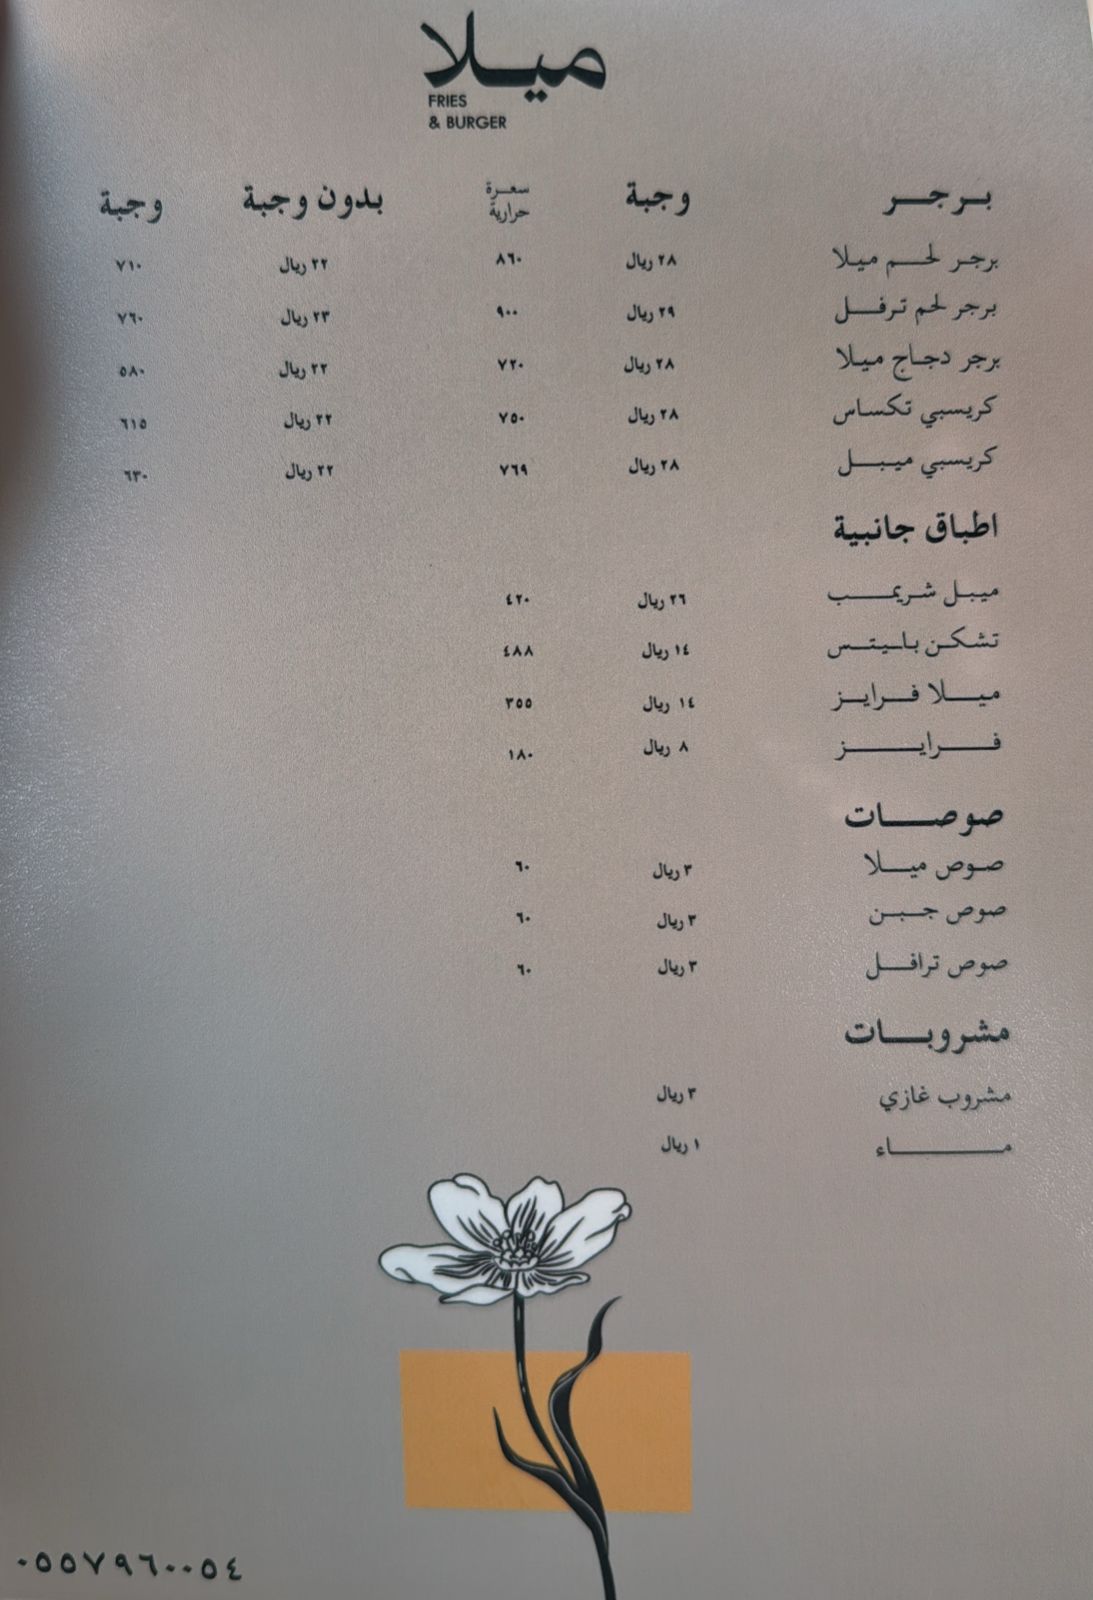 ميلا
FRIES
& BURGER
برجر وجبة سعرة حرارية بدون وجبة وجبة
برجر لحم ميلا ٢٨ ريال ٨٦٠ ٢٢ ريال ٧١٠
برجر لحم ترفل ٢٩ ريال ٩٠٠ ٢٣ ريال ٧٦٠
برجر دجاج ميلا ٢٨ ريال ٧٢٠ ٢٢ ريال ٥٨٠
كريسبي تكساس ٢٨ ريال ٧٥٠ ٢٢ ريال ٦١٥
كريسبي ميبل ٢٨ ريال ٧٦٩ ٢٢ ريال ٦٣٠
اطباق جانبية
ميبل شريمب ٢٦ ريال ٤٢٠
تشكن بايتس ١٤ ريال ٤٨٨
ميلا فرايز ١٤ ريال ٣٥٥
فرايز ٨ ريال ١٨٠
صوصات
صوص ميلا ٣ ريال ٦٠
صوص جبن ٣ ريال ٦٠
صوص ترافل ٣ ريال ٦٠
مشروبات
مشروب غازي ٣ ريال
ماء ١ ريال
٠٥٥٧٩٦٠٠٥٤